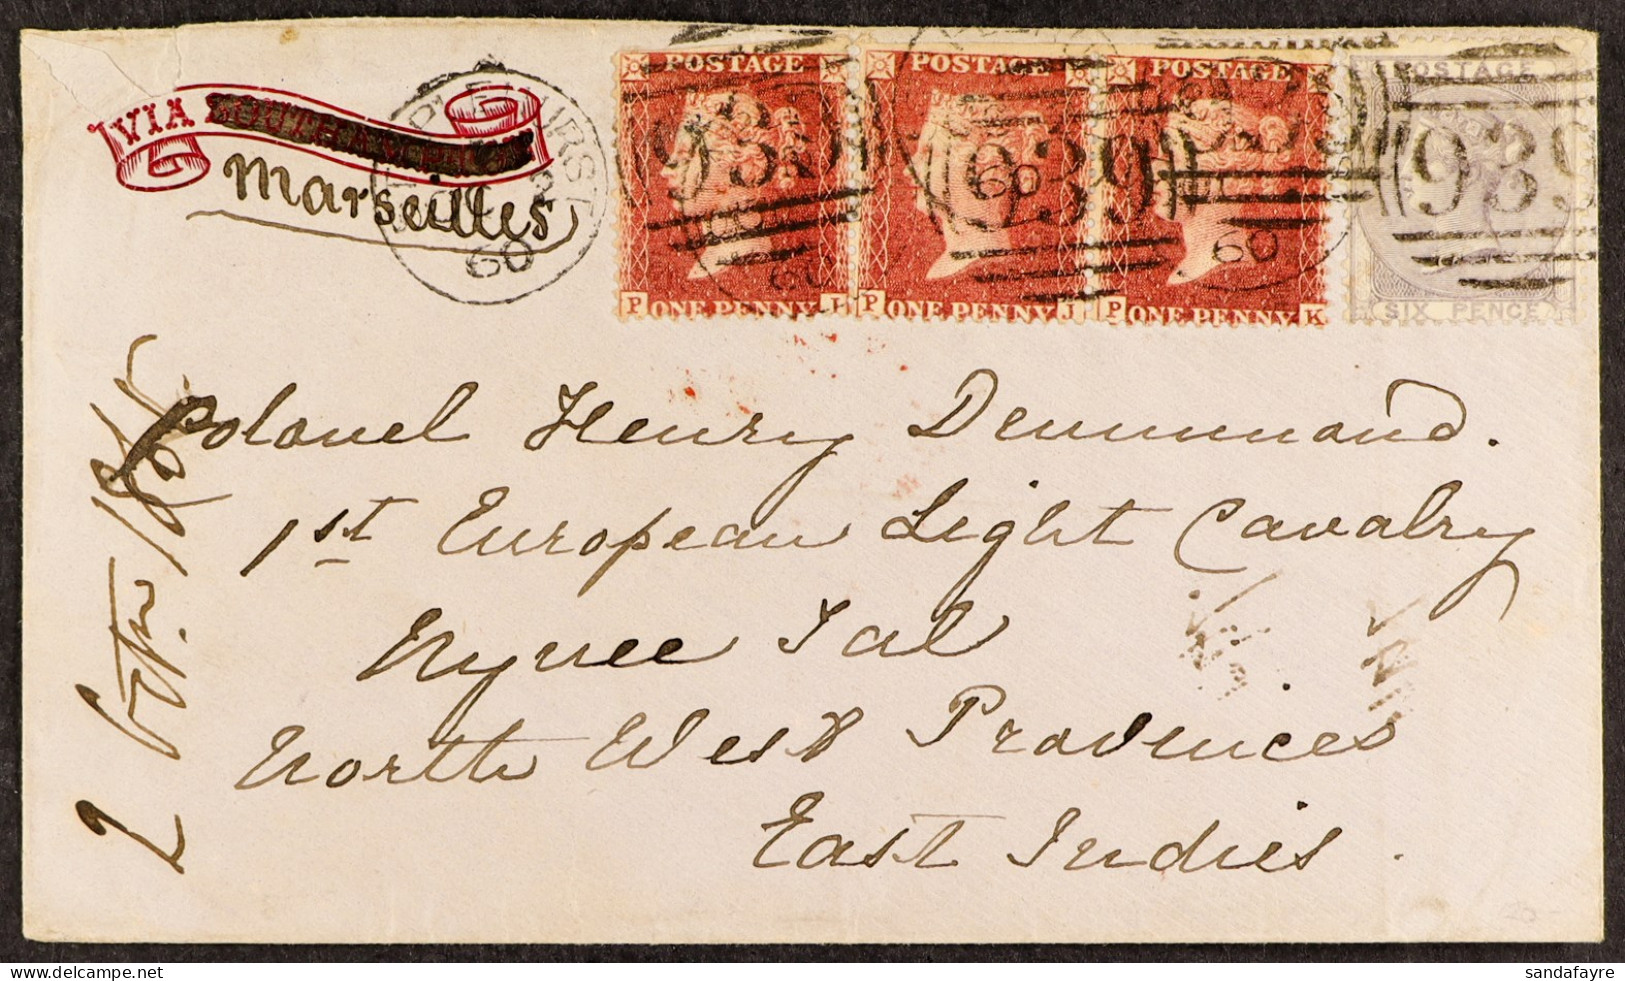 VIA
Marseilles
STAPLEHURST
60
POSTAGE
ONE PENNY
P
939
POSTAGE
ONE PENNY
P J
60
939
POSTAGE
ONE PENNY
P K
60
POSTAGE
SIX PENCE
939
Colonel Henry Drummond.
1st European Light Cavalry
Nynee Tal
North West Provinces
East Indies.
sandafayre